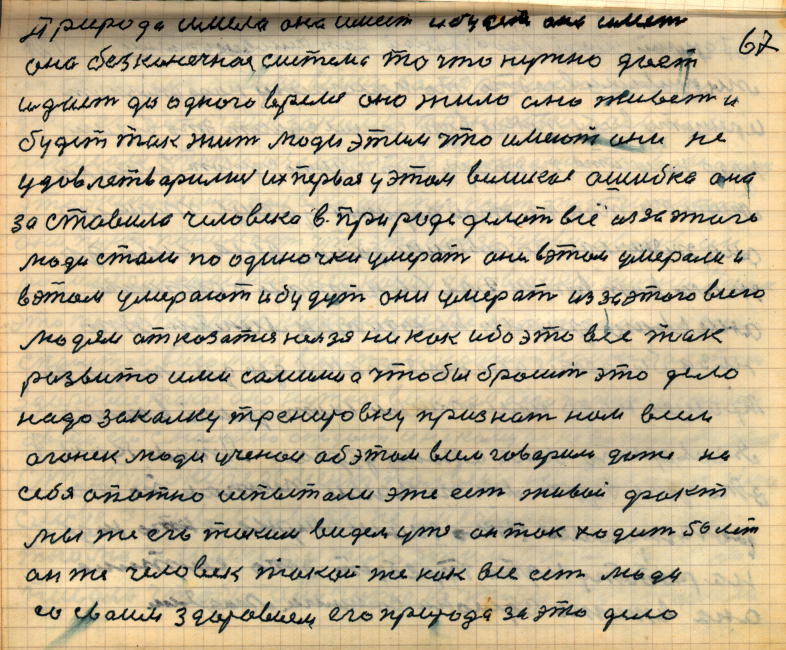 природа имела она имеет и будет она иметь
67
она безконечноя система то что нужно дает
и дает до одного время оно жило оно живет и
будет так жит люди этим что имеют они не
удовлетварилис их первая у этом великоя ошибка она
заставила человека в природе делот всё из за этого
люди стали по одиночки умерат они вэтом умерали и
вэтом умерают и будут они умерат из за этого всего
людям отказатся нелзя никак ибо это все так
развито ими самими а чтобы бросит это дело
надо закалку тренировку признат нам всем
огонек люди ученои об этом всем говорили даже на
себя опотно испытали эже ест живой факт
мы же его таким видем уже он так ходит болет
он же человек такой же как все ест люди
со своим здоровием его природа за это дело